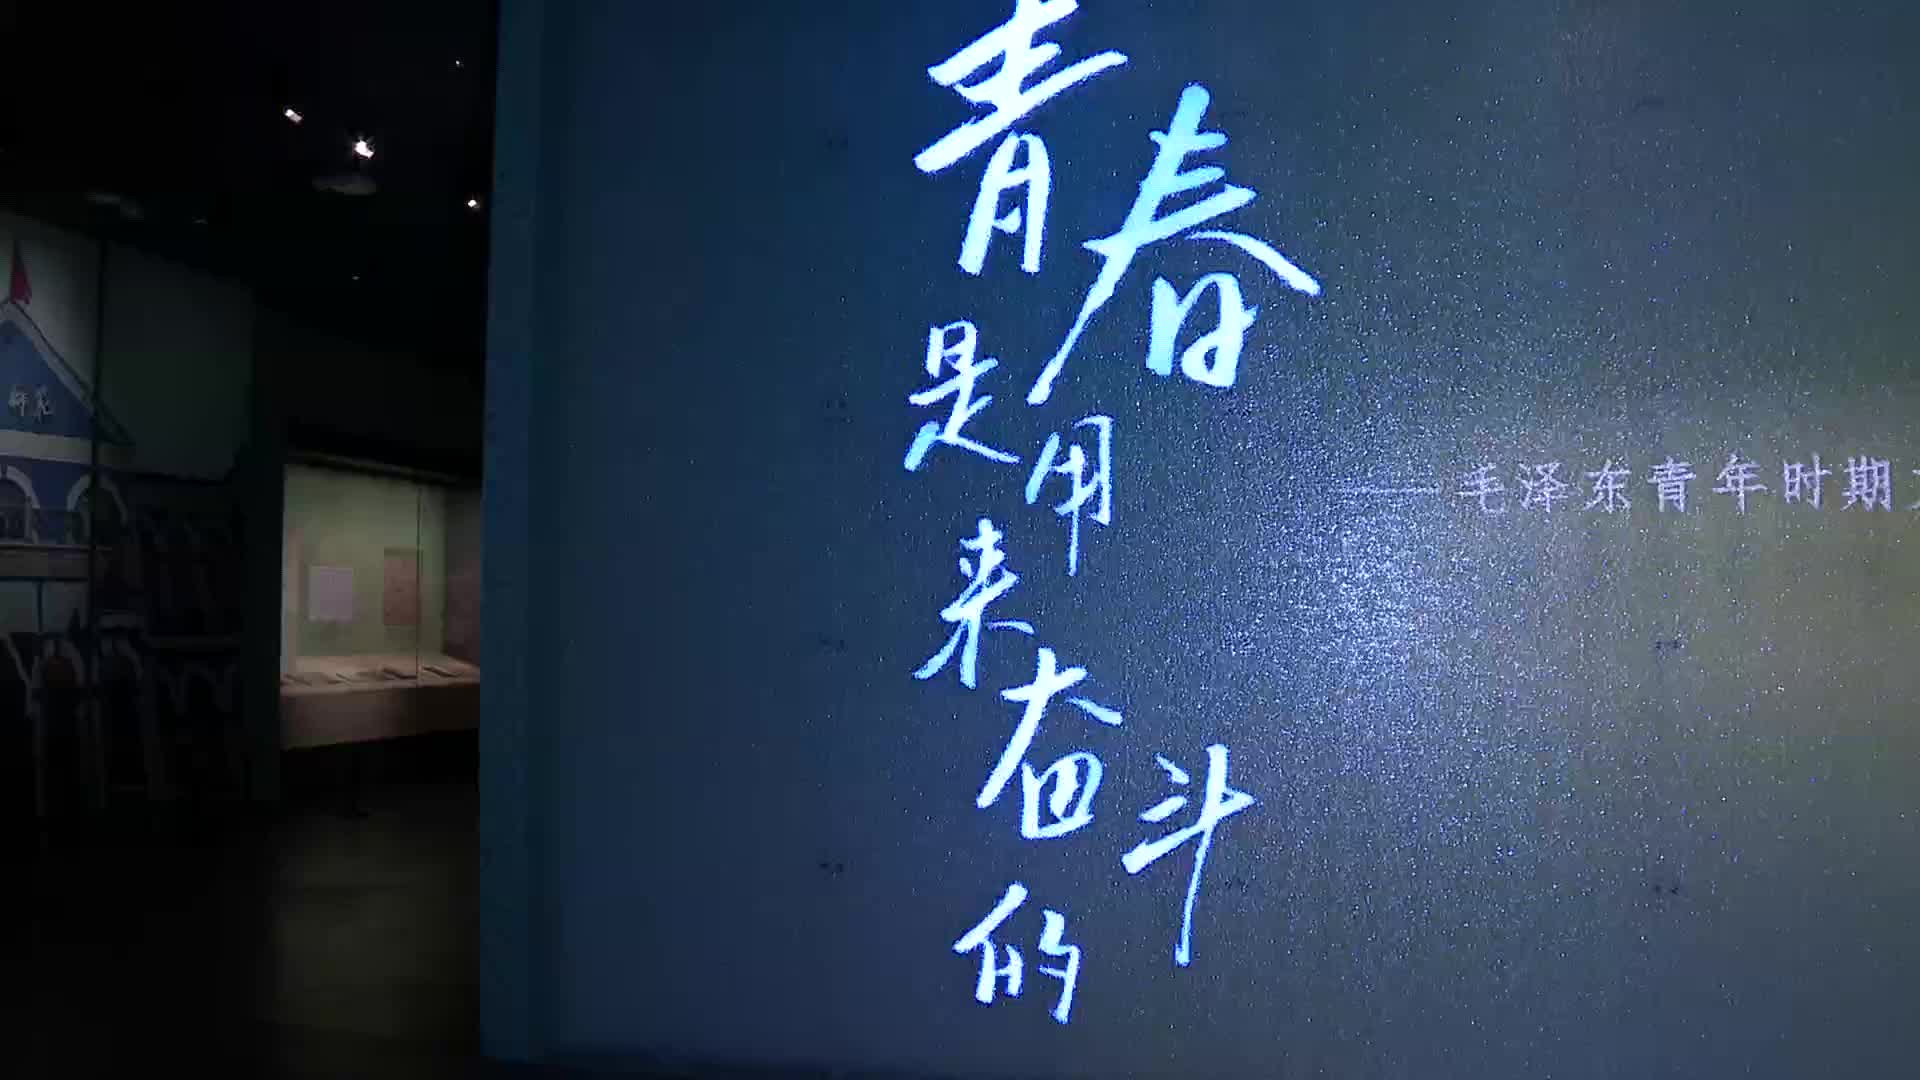 青春
是用来奋斗的
——毛泽东青年时期